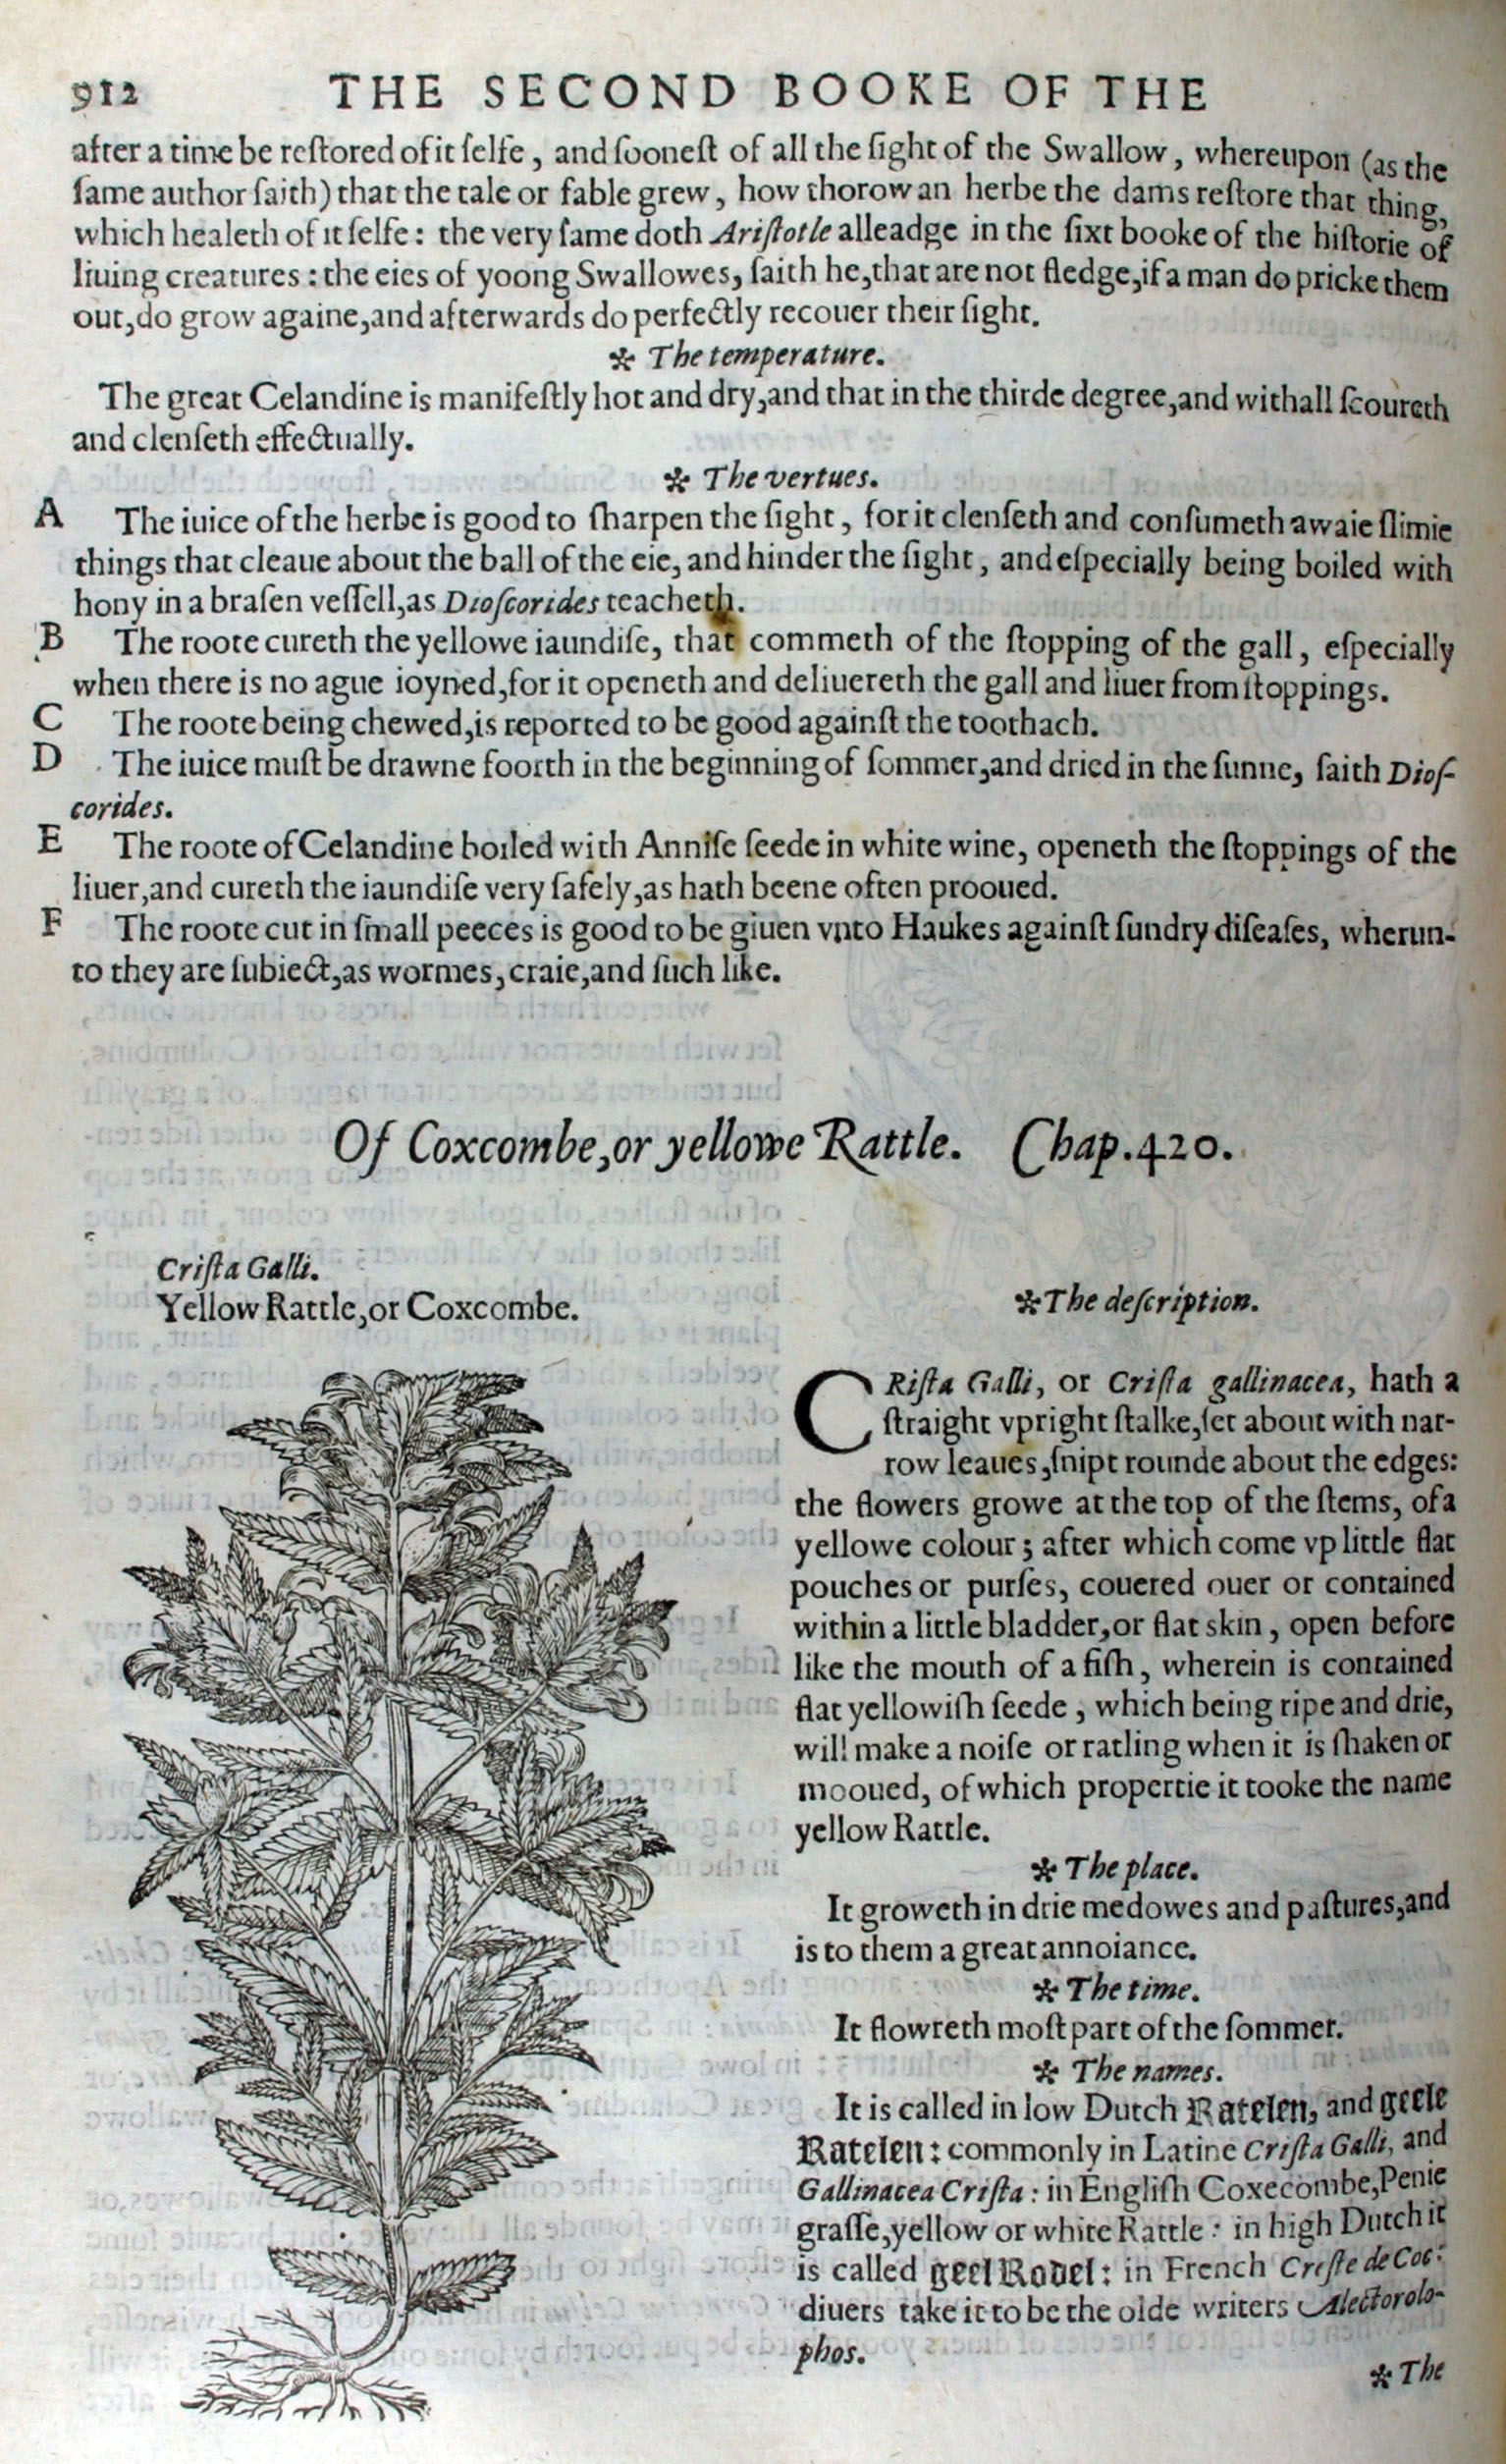 912 THE SECOND BOOKE OF THE
after a time be reſtored of it ſelfe, and ſooneſt of all the ſight of the Swallow, whereupon (as the
ſame author ſaith) that the tale or fable grew, how thorow an herbe the dams reſtore that thing,
which healeth of it ſelfe: the very ſame doth Ariſtotle alleadge in the ſixt booke of the hiſtorie of
liuing creatures: the eies of yoong Swallowes, ſaith he, that are not fledge, if a man do pricke them
out, do grow againe, and afterwards do perfectly recouer their ſight.
✲ The temperature.
The great Celandine is manifeſtly hot and dry, and that in the thirde degree, and withall ſcoureth
and clenſeth effectually.
✲ The vertues.
A The iuice of the herbe is good to ſharpen the ſight, for it clenſeth and conſumeth awaie ſlimie
things that cleaue about the ball of the eie, and hinder the ſight, and eſpecially being boiled with
hony in a braſen veſſell, as Dioſcorides teacheth.
B The roote cureth the yellowe iaundiſe, that commeth of the ſtopping of the gall, eſpecially
when there is no ague ioyned, for it openeth and deliuereth the gall and liuer from ſtoppings.
C The roote being chewed, is reported to be good againſt the toothach.
D The iuice muſt be drawne foorth in the beginning of ſommer, and dried in the ſunne, ſaith Dioſ-
corides.
E The roote of Celandine boiled with Anniſe ſeede in white wine, openeth the ſtoppings of the
liuer, and cureth the iaundiſe very ſafely, as hath beene often prooued.
F The roote cut in ſmall peeces is good to be giuen vnto Haukes againſt ſundry diſeaſes, wherun-
to they are ſubiect, as wormes, craie, and ſuch like.
Of Coxcombe, or yellowe Rattle. Chap. 420.
Criſta Galli.
Yellow Rattle, or Coxcombe.
✲ The deſcription.
CRiſta Galli, or Criſta gallinacea, hath a
ſtraight vpright ſtalke, ſet about with nar-
row leaues, ſnipt rounde about the edges:
the flowers growe at the top of the ſtems, of a
yellowe colour; after which come vp little flat
pouches or purſes, couered ouer or contained
within a little bladder, or flat skin, open before
like the mouth of a fiſh, wherein is contained
flat yellowiſh ſeede, which being ripe and drie,
will make a noiſe or ratling when it is ſhaken or
mooued, of which propertie it tooke the name
yellow Rattle.
✲ The place.
It groweth in drie medowes and paſtures, and
is to them a great annoiance.
✲ The time.
It flowreth moſt part of the ſommer.
✲ The names.
It is called in low Dutch Ratelen, and geele
Ratelen: commonly in Latine Criſta Galli, and
Gallinacea Criſta: in Engliſh Coxecombe, Penie
graſſe, yellow or white Rattle: in high Dutch it
is called geel Rodel: in French Creſte de Coc:
diuers take it to be the olde writers Alectorolo-
phos.
✲ The